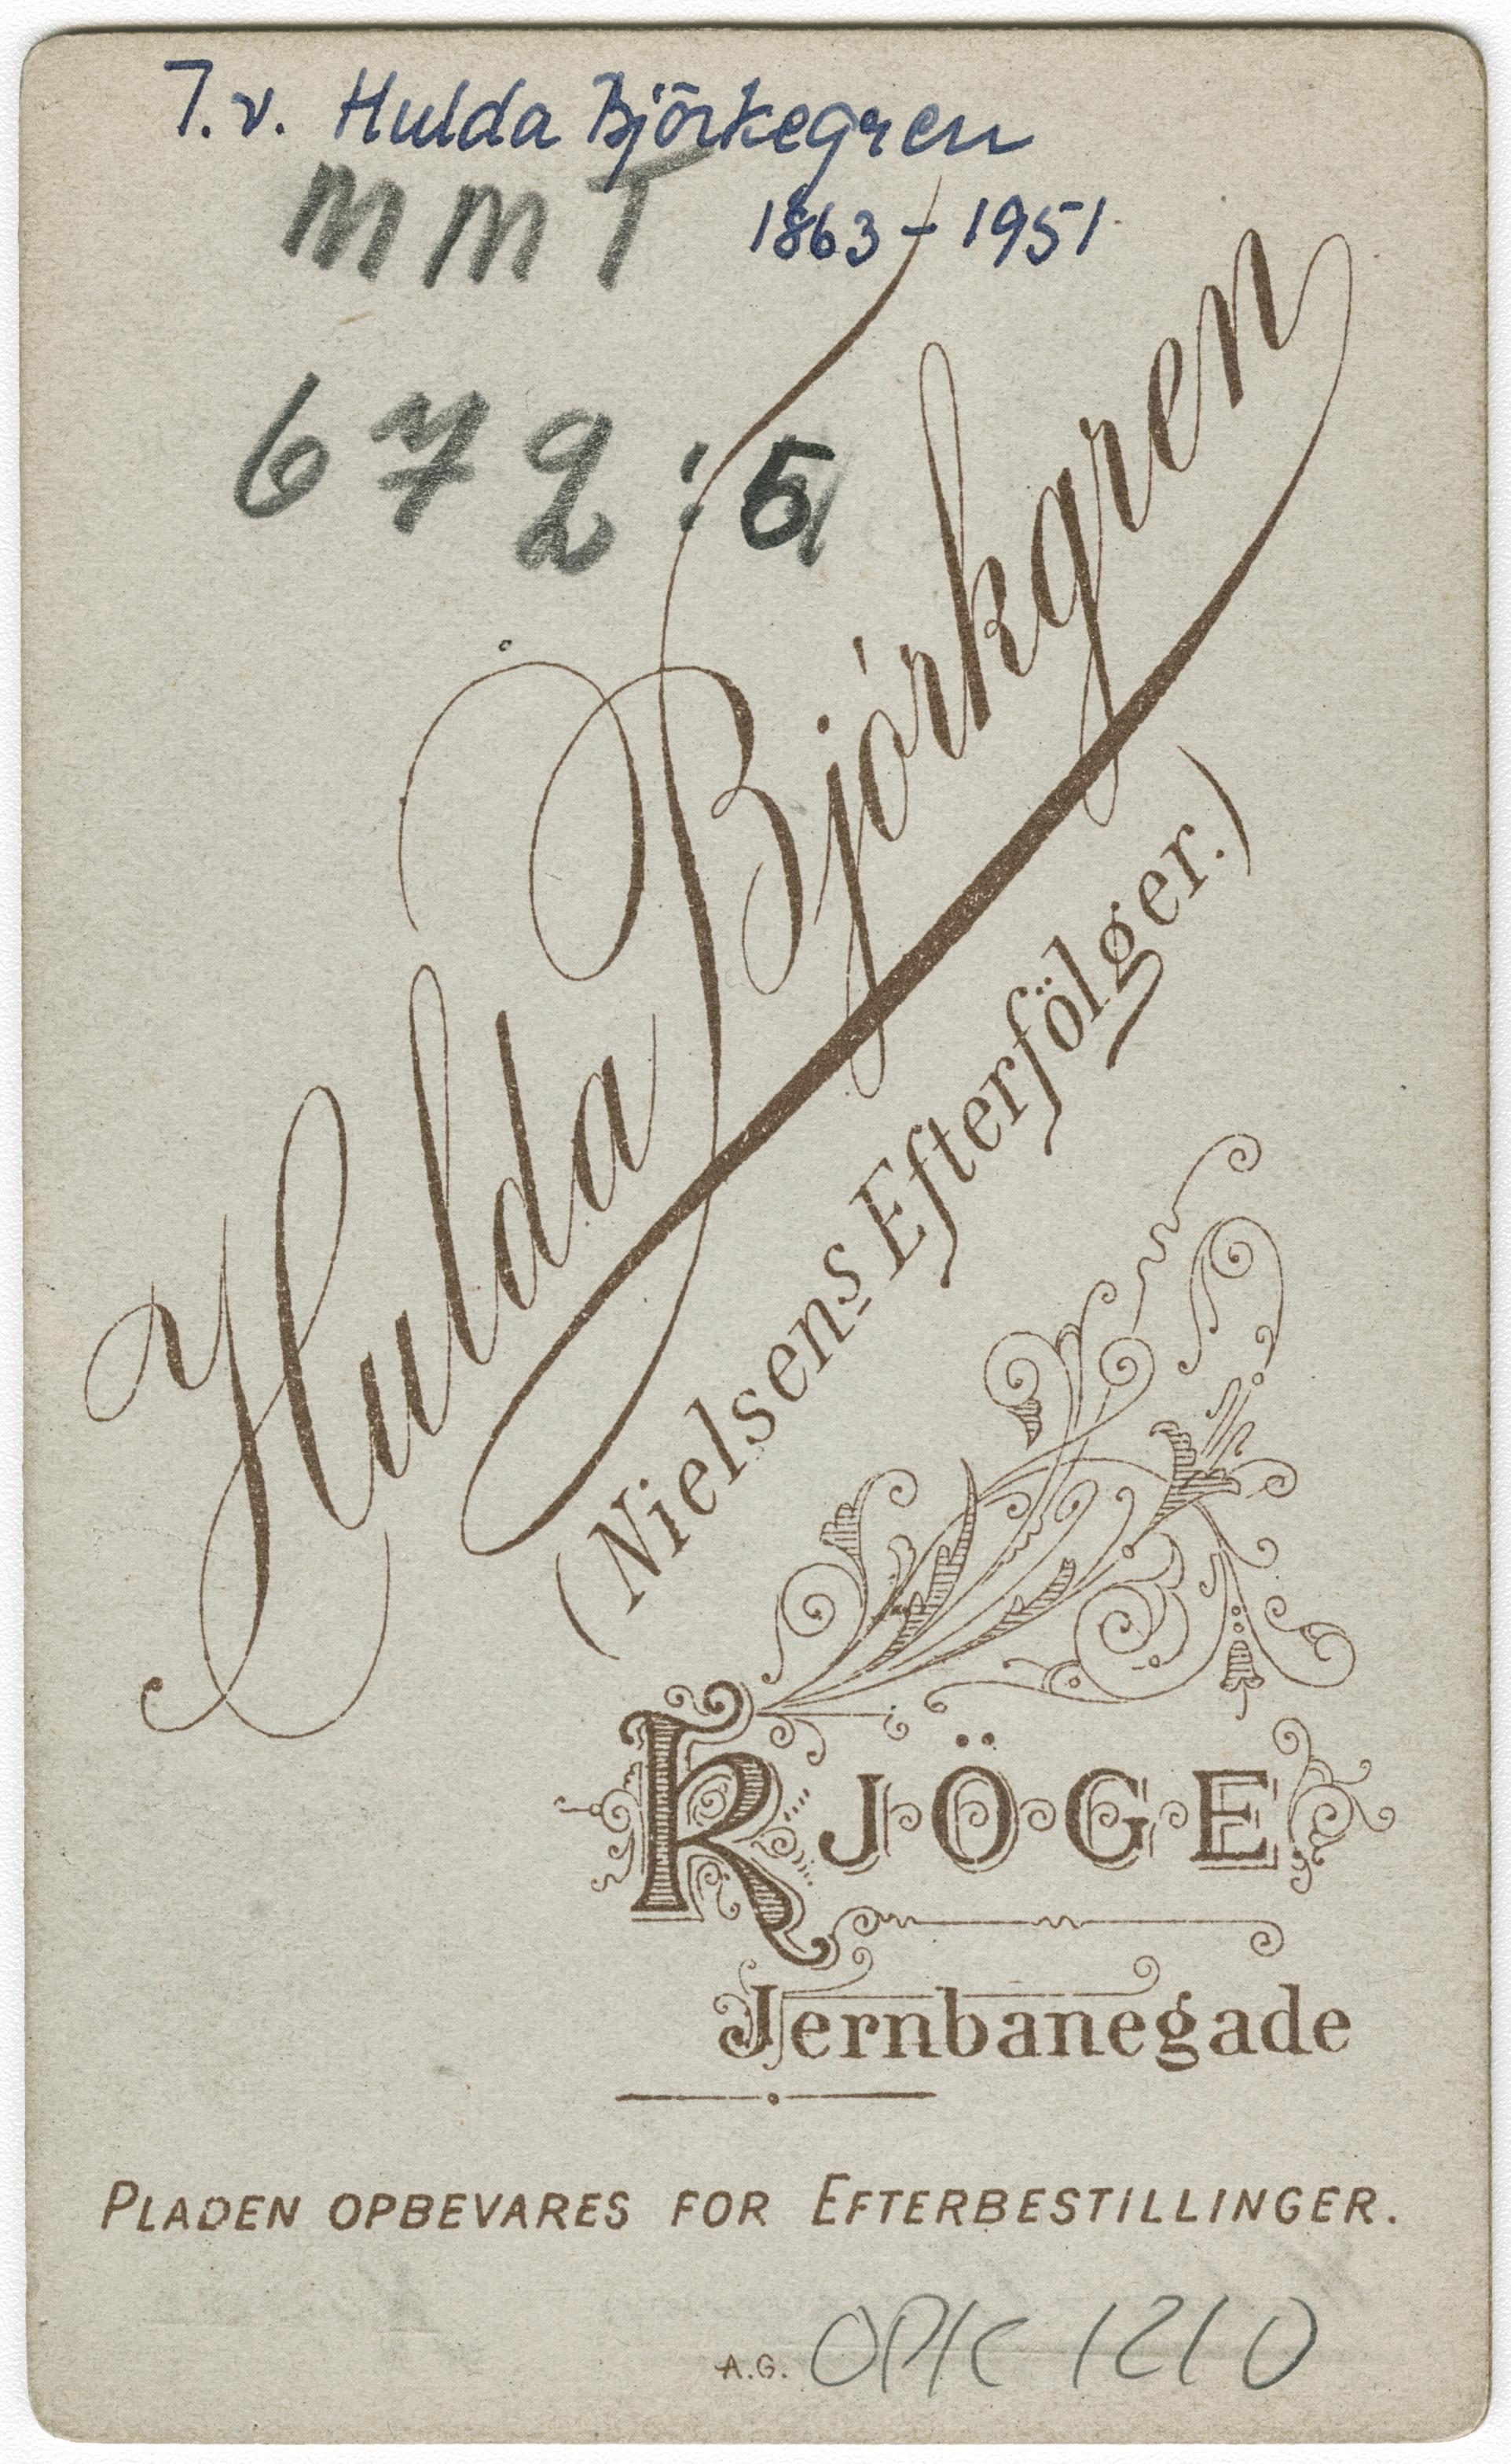 T.v. Hulda Björkegren
MMT 1863-1951
672:5
Hulda Björkgren
(Nielsens Efterfölger.)
KJÖGE
Jernbanegade
PLADEN OPBEVARES FOR EFTERBESTILLINGER.
A.G. OPK 1210